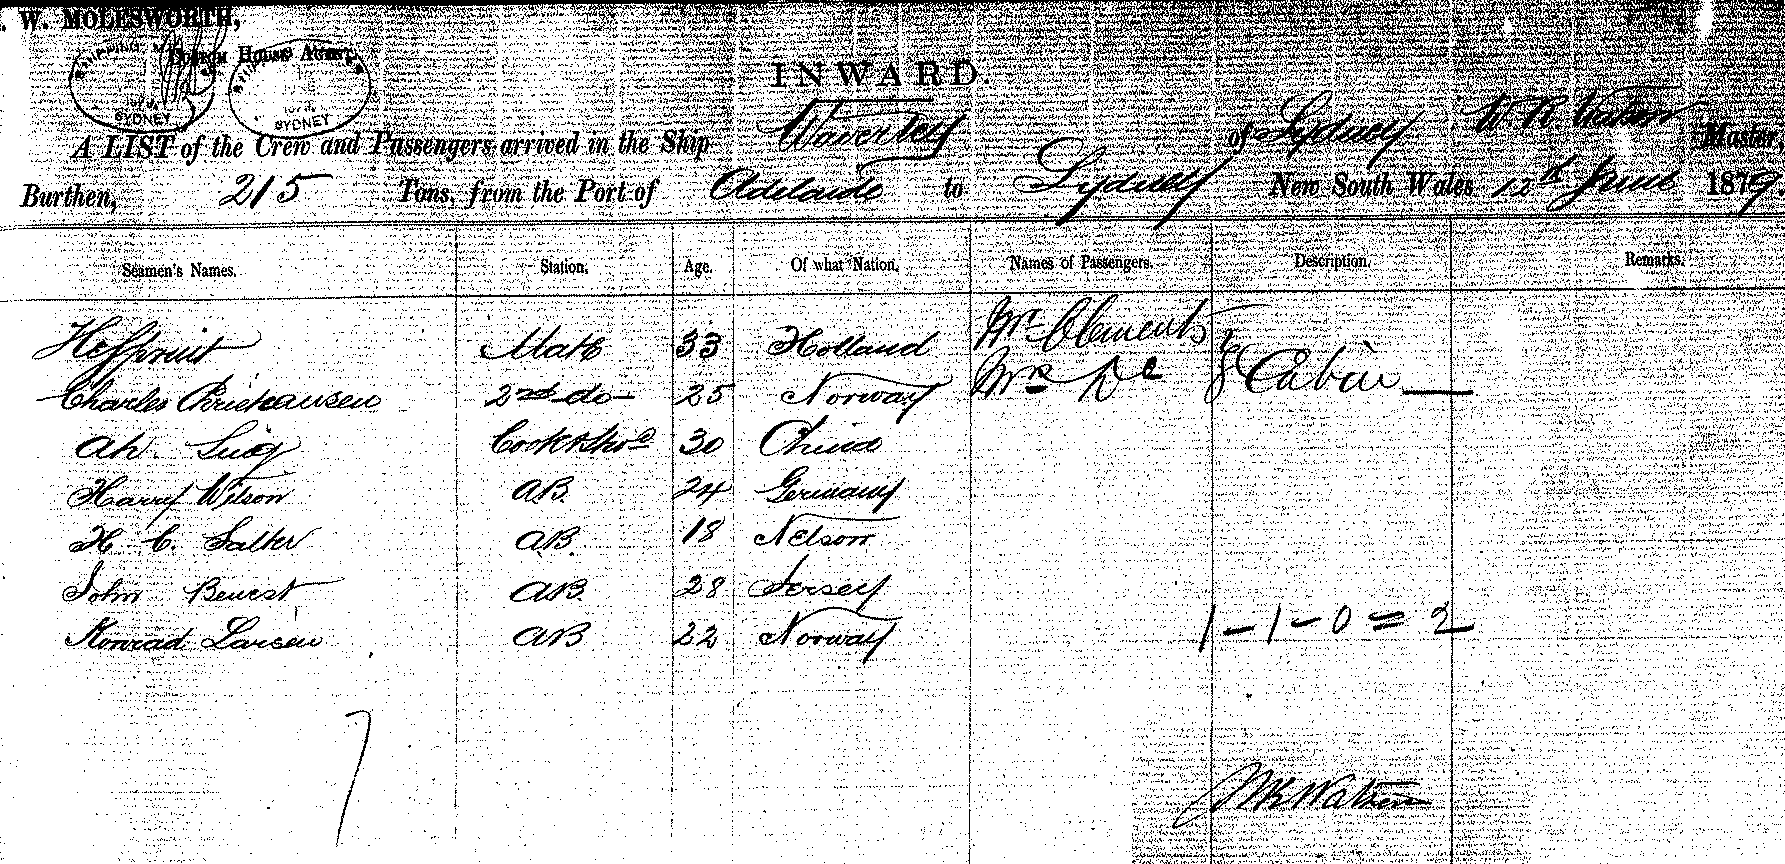 . W. MOLESWORTH,
CUSTOM HOUSE AGENT,
SHIPPING
SYDNEY
SYDNEY
INWARD.
A LIST of the Crew and Passengers arrived in the Ship Waverley of Sydney W R Watson Master,
Burthen, 215 Tons, from the Port of Adelaide to Sydney New South Wales 12th June 1879.
Seamen's Names. Station. Age. Of what Nation. Names of Passengers. Description. Remarks.
Mate 33 Holland Mr Clements
Charles 2nd do 25 Norway Mrs Do Cabin
Ah 30 China
Harry Wilson AB 24 Germany
H C. Salter AB 18 Nelson
John Benest AB 28 Jersey
Konrad Larsen AB 22 Norway 1 - 1 - 0 = 2
7
W R Watson